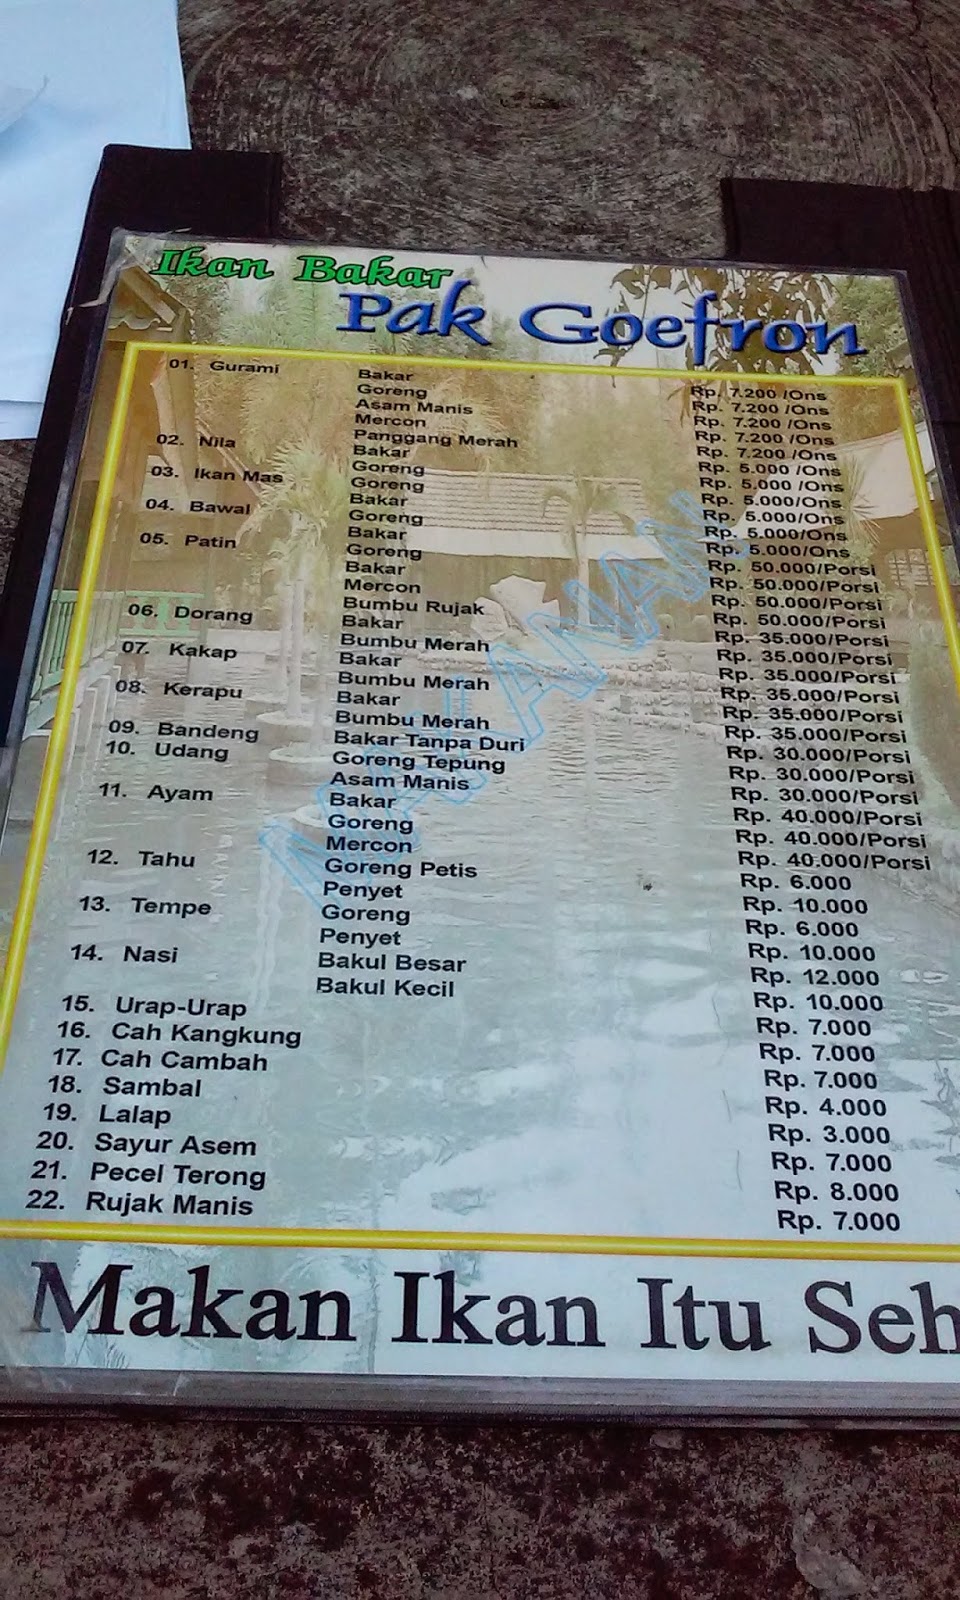 Ikan Bakar
Pak Goefron
01. Gurami Bakar Rp. 7.200 /Ons
Goreng Rp. 7.200 /Ons
Asam Manis Rp. 7.200 /Ons
Mercon Rp. 7.200 /Ons
Panggang Merah Rp. 7.200 /Ons
02. Nila Bakar Rp. 5.000 /Ons
Goreng Rp. 5.000 /Ons
03. Ikan Mas Goreng Rp. 5.000/Ons
Bakar Rp. 5.000/Ons
04. Bawal Goreng Rp. 5.000/Ons
Bakar Rp. 5.000/Ons
05. Patin Goreng Rp. 50.000/Porsi
Bakar Rp. 50.000/Porsi
Mercon Rp. 50.000/Porsi
Bumbu Rujak Rp. 50.000/Porsi
06. Dorang Bakar Rp. 35.000/Porsi
Bumbu Merah Rp. 35.000/Porsi
07. Kakap Bakar Rp. 35.000/Porsi
Bumbu Merah Rp. 35.000/Porsi
08. Kerapu Bakar Rp. 35.000/Porsi
Bumbu Merah Rp. 35.000/Porsi
09. Bandeng Bakar Tanpa Duri Rp. 30.000/Porsi
10. Udang Goreng Tepung Rp. 30.000/Porsi
Asam Manis Rp. 30.000/Porsi
11. Ayam Bakar Rp. 40.000/Porsi
Goreng Rp. 40.000/Porsi
Mercon Rp. 40.000/Porsi
12. Tahu Goreng Petis Rp. 6.000
Penyet Rp. 10.000
13. Tempe Goreng Rp. 6.000
Penyet Rp. 10.000
14. Nasi Bakul Besar Rp. 12.000
Bakul Kecil Rp. 10.000
15. Urap-Urap Rp. 7.000
16. Cah Kangkung Rp. 7.000
17. Cah Cambah Rp. 7.000
18. Sambal Rp. 4.000
19. Lalap Rp. 3.000
20. Sayur Asem Rp. 7.000
21. Pecel Terong Rp. 8.000
22. Rujak Manis Rp. 7.000
MAKANAN
Makan Ikan Itu Seh